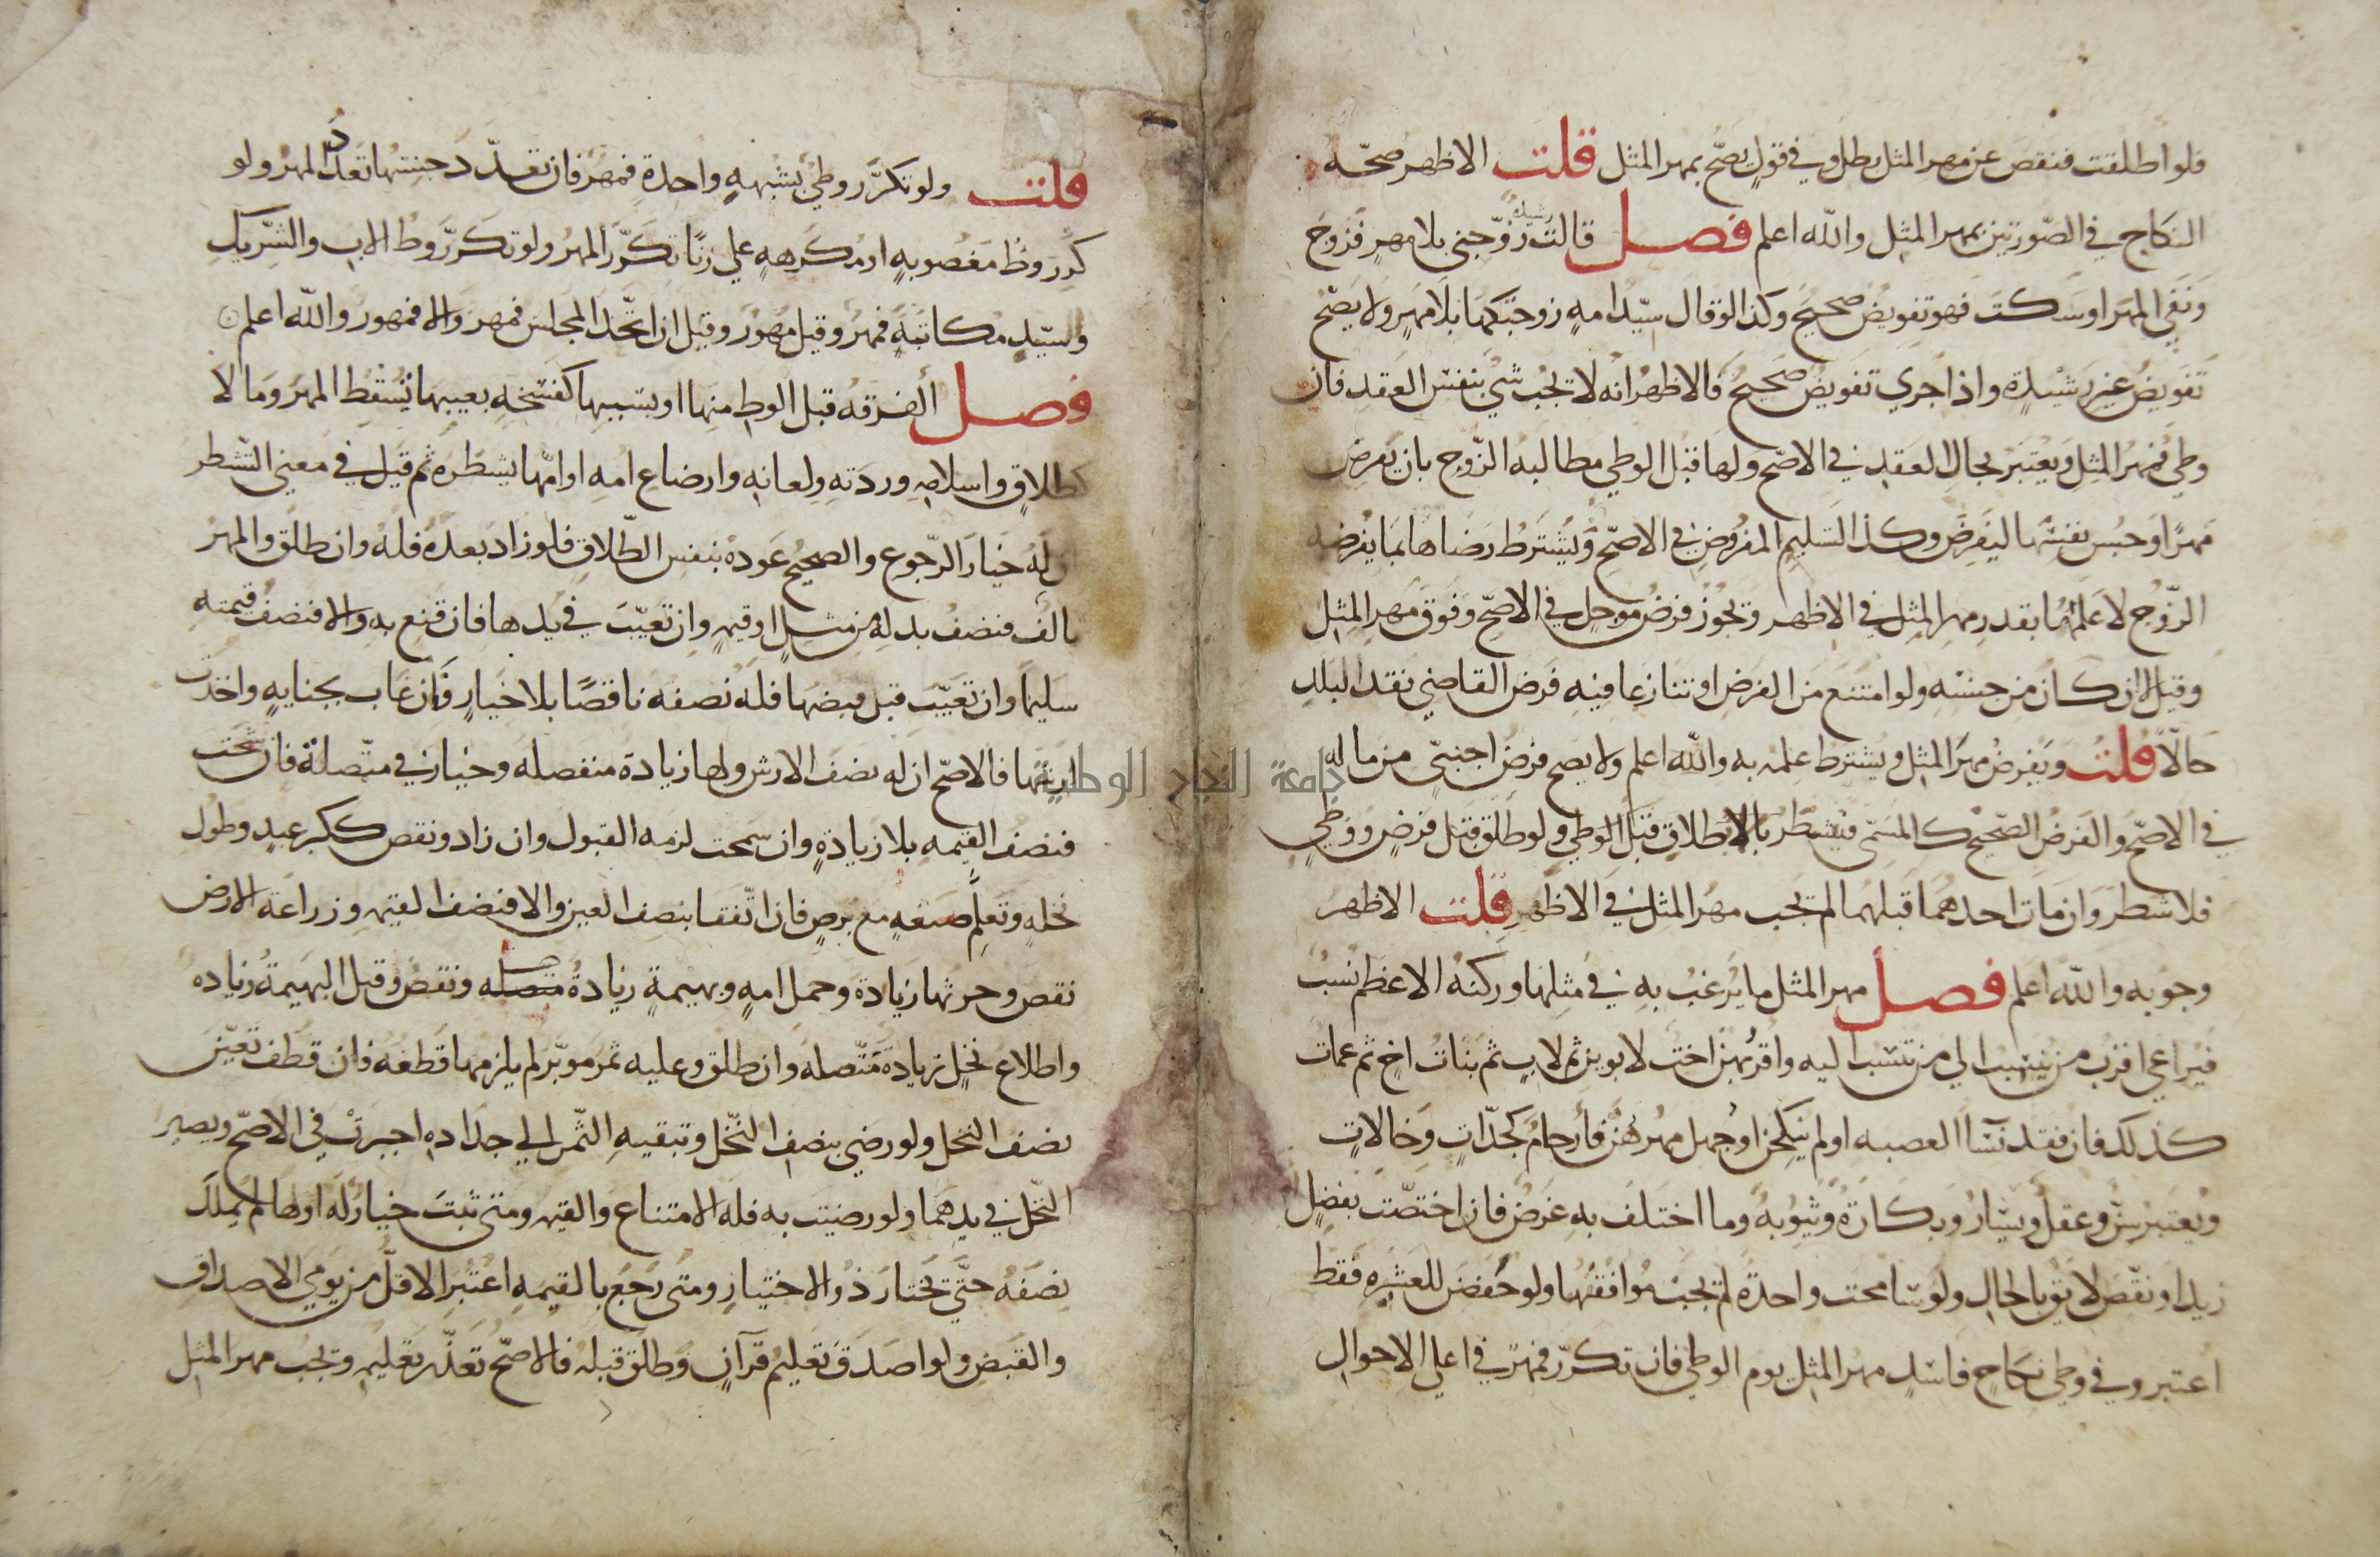 فلو اطلقت فنقص عن مهر المثل بطل وفي قول يصح بمهر المثل قلت الاظهر صحة
النكاح في الصورتين بمهر المثل والله اعلم فصل قالت رشيدة زوّجني بلا مهر فزوج
ونفي المهر او سكت فهو تفويض صحيح وكذا لو قال سيد امه زوجتكها بلا مهر ولا يصح
تفويض غير رشيدة واذا جري تفويض صحيح فالاظهر انه لا تجب شي بنفس العقد فان
وطي فمهر المثل ويعتبر بحال العقد في الاصح ولها قبل الوطي مطالبه الزوج بان يفرض
مهرًا وحبس نفسها ليفرض وكذا التسليم المفروض في الاصح ويشترط رضاها بما يفرضه
الزوج لا علمهُا بقدر مهر المثل في الاظهر وتجوز فرض موجل في الاصح وفوق مهر المثل
وقيل لا ان كان من جنسه ولو امتنع من الفرض او تنازعا فيه فرض القاضي نقد البلد
حالًا قلت ويفرض مهر المثل ويشترط علمه به والله اعلم ولا يصح فرض اجنبي من ماله
في الاصح والفرض الصحيح كالمسمى فيتشطر بالطلاق قبل الوطي ولو طلق قبل فرض ووطي
فلا شطر وان مات احدهما قبلهما لم تجب مهر المثل في الاظهر قلت الاظهر
وجوبه والله اعلم فصل مهر المثل ما يرغب به في مثلها وركنه الاعظم نسب
فيراعي اقرب من ينسب الي من تنسب اليه واقربهن اخت لابوين ثم لاب ثم بنات اخ ثم عمات
كذلك فان فقد نسآ العصبه او لم ينكحن او جهل مهرهن فارحام كجدّات وخالات
ويعتبر سن وعقل ويسار وبكارة وثيوبه وما اختلف به غرض فان اختصّت بفضل
زيد او نقص لايق بالحال ولو سامحت واحدة لم تجب موافقتها ولو خفضن للعشيره فقط
اعتبر وفي وطي نكاح فاسد مهر المثل يوم الوطي فان تكرر فمهر في اعلي الاحوال
قلت ولو تكرَّر وطي بشبهه واحدة فمهر فان تعدّد جنسها تعدد المهر ولو
كرر وطْ مغصوبه او مكرهه علي زنًا تكرّر المهر ولو تكرر وط الاب والشريك
وسيد مكاتبة فمهر وقيل مهور وقيل ان اتحد المجلس فمهر والا فمهور والله اعلم
فصل الفرقه قبل الوط منها او بسببها كفسخه بعيبها تُسقط المهر وما لا
كطلاق واسلامه وردته ولعانه وارضاع امه او امّها يشطره ثم قيل في معني التشطر
له خيار الرجوع والصحيح عوده بنفس الطلاق فلو زاد بعده فله وان طلق والمهر
تالف فنصف بدله من مثل او قيمه وان تعيّب في يدها فان قنع به والا فنصف قيمته
سليما وان تعيّب قبل قبضها فله نصفه ناقصًا بلا خيار فان عاب بجنايه واخذت
ارشها فالاصح ان له نصف الارش ولها زيادة منفصله وخيار في متصلة فان شحت
فنصف القيمه بلا زيادةٍ وان سمحت لزمه القبول وان زاد ونقص ككبر عبد وطول
نخله وتعلم صنعه مع برص فان اتّفقا بنصف العين والا فنصف القيمه وزراعة الارض
نقص وحرثها زيادة وحمل امه وبهيمةٍ زيادةٌ ونقص وقيل البهيمة زياده
واطلاع نخل زيادة متّصله وان طلق وعليه ثمر موبّر لم يلزمها قطفه فان قطف تعيّن
نصف النخل ولو رضي بنصف النّخل وتبقيه الثّمر الي جداده اجبرت في الاصحّ ويصير
النّخل في يدهما ولو رضيت به فله الامتناع والقيمه ومتي ثبت خيار له او لها لم يملك
نصفه حتّي تختار ذو الاختيار ومتي رجع بالقيمه اعتبر الاقلّ من يومي الاصداق
والقبض ولو اصدق تعليم قرآن وطلق قبله فالاصحّ تعذّر تعليمه وتجب مهر المثل
جامعة النجاح الوطنية